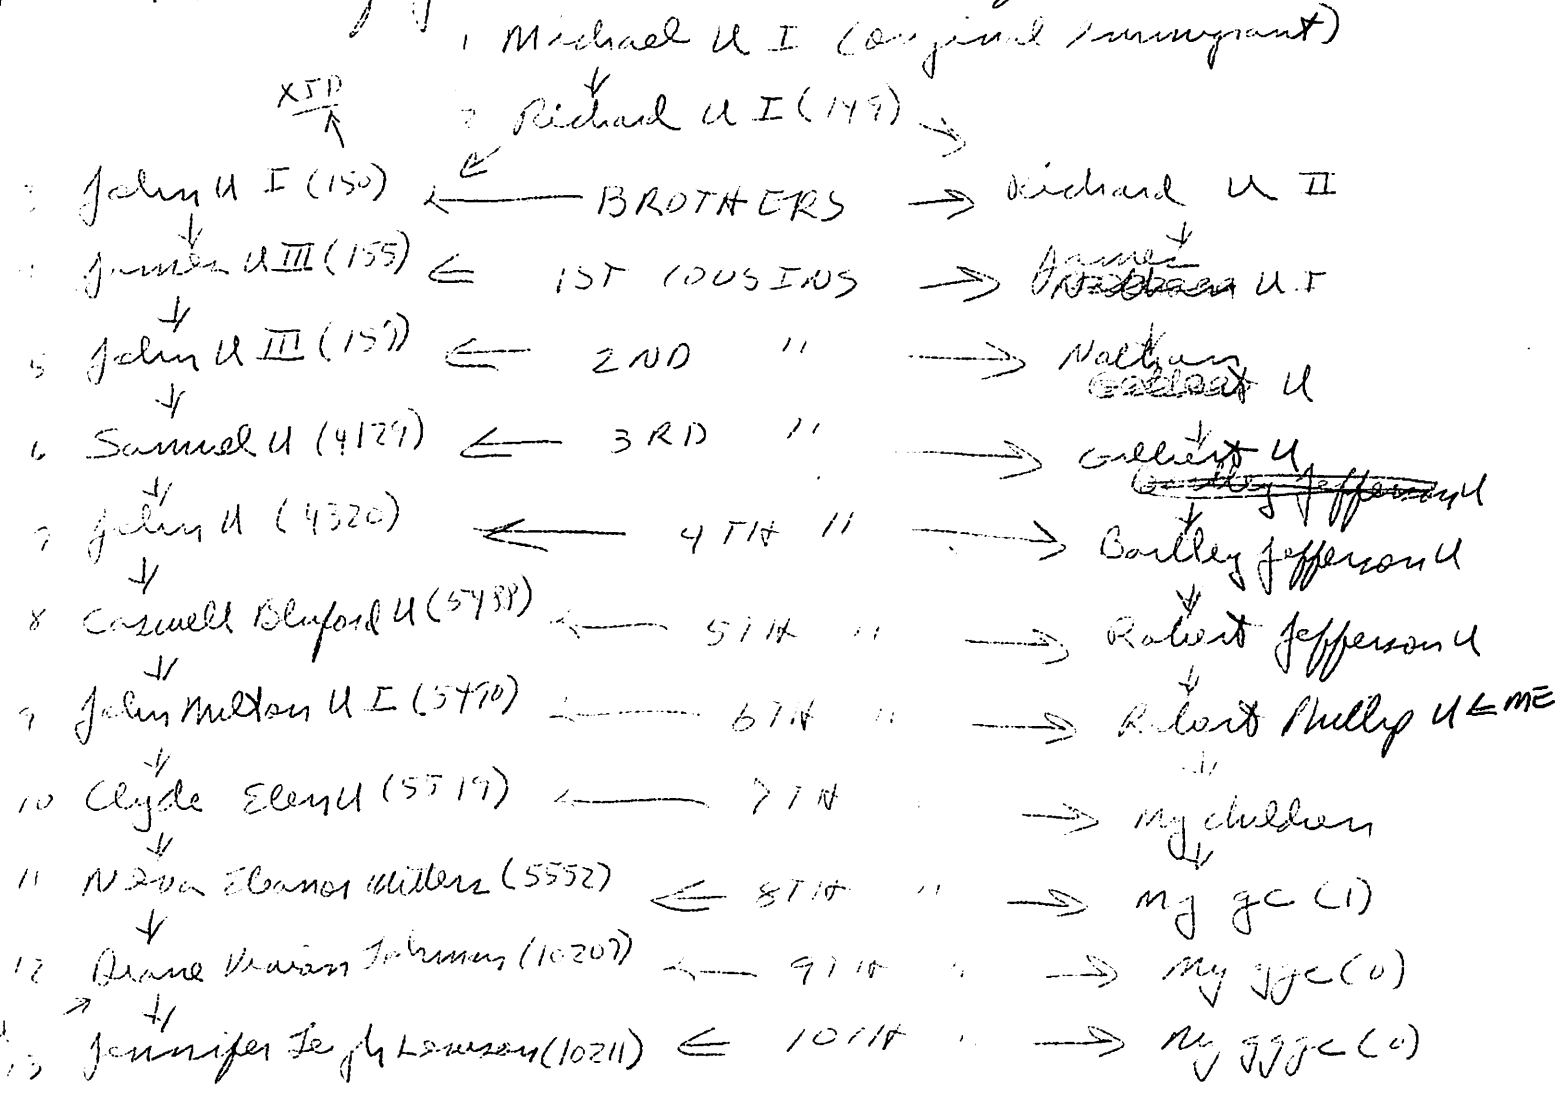 1 Michael U I (original immigrant)
XJD
2 Richard U I (149)
3 John U I (150) BROTHERS Richard U II
4 James U III (155) 1ST COUSINS James U I
5 John U III (157) 2ND " Nathan U
6 Samuel U (4129) 3RD " Gilbert U
Bartley Jefferson U
7 John U (4320) 4TH " Bartley Jefferson U
8 Caswell Bluford U (5488) 5TH " Robert Jefferson U
9 John Milton U I (5490) 6TH " Robert Phillip U ME
10 Clyde Eley U (5519) 7TH My children
11 Eleanor (5552) 8TH " My gc (1)
12 Diane Vivian (10207) 9TH " My ggc (0)
13 Jennifer Leigh Lawson (10211) 10TH " My gggc (0)